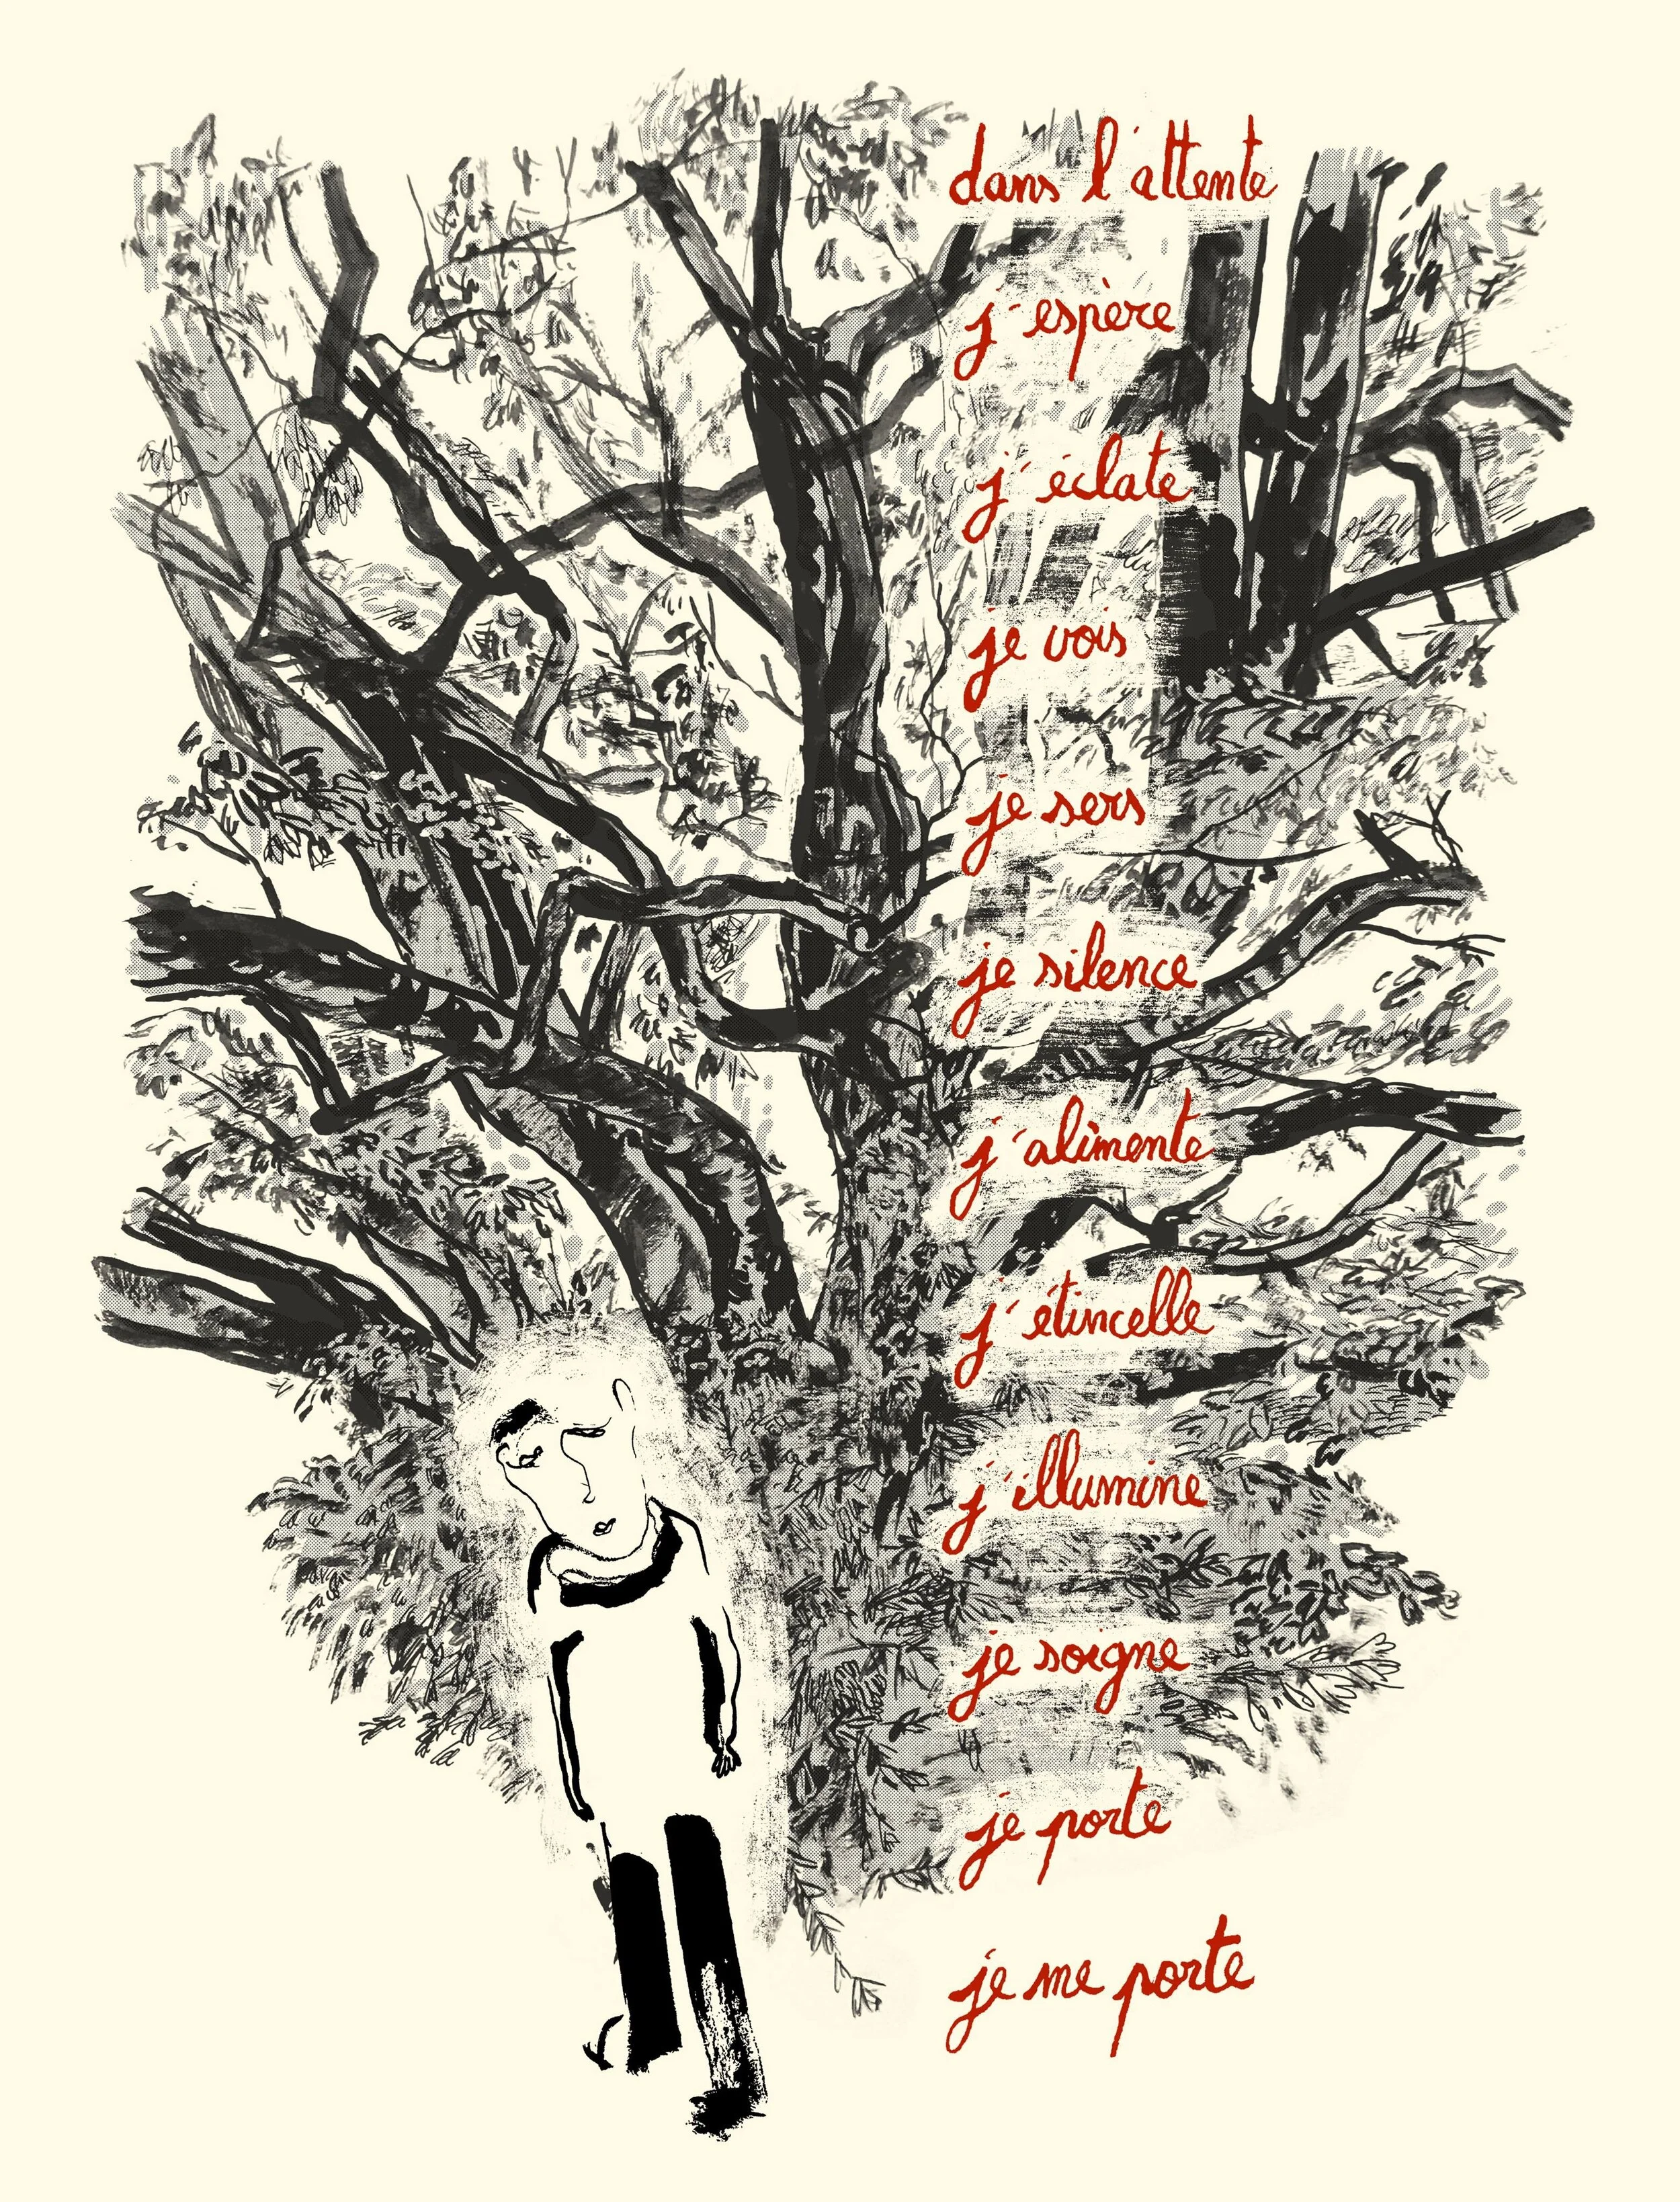 dans l'attente
j'espère
j'éclate
je vois
je sers
je silence
j'alimente
j'étincelle
j'illumine
je soigne
je porte
je me porte